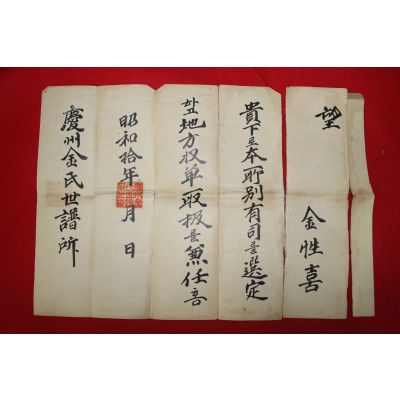 望　金性喜
貴下로本所別有司를選定
하고地方収单取扱을兼任홈
昭和拾年　月　日
慶州金氏世譜所